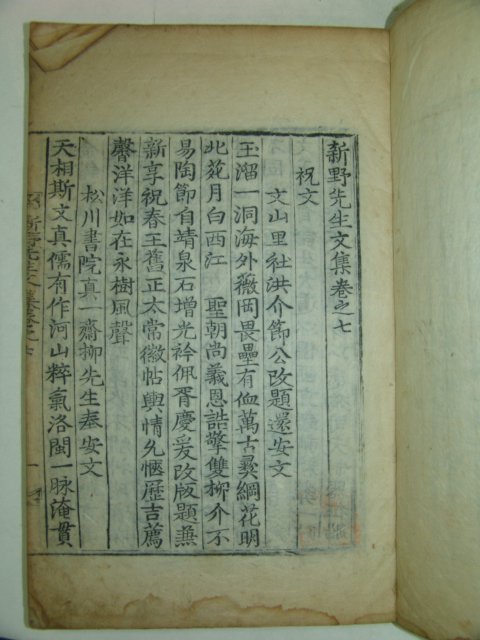 新野先生文集卷之七
祝文
文山里社洪介節公改題還安文
玉溜一洞海外薇岡畏壘有侐萬古彛綱花明
北苑月白西江 聖朝尚義恩誥擎雙柳介不
易陶節自靖泉石增光衿佩胥慶爰改版題燕
新享祝春王舊正太常徽帖輿情允愜歷吉薦
馨洋洋如在永樹風聲
松川書院真一齋柳先生奉安文
天相斯文真儒有作河山粹氣洛閩一脉淹貫